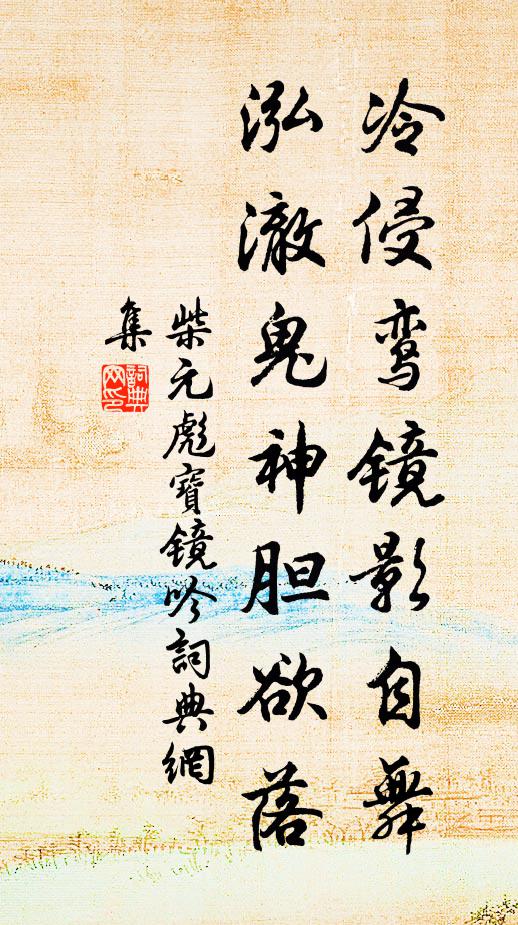 冷侵鸾镜影自舞
泓澈鬼神胆欲落
柴元彪寶镜吟詞典網
集
詞典
网印